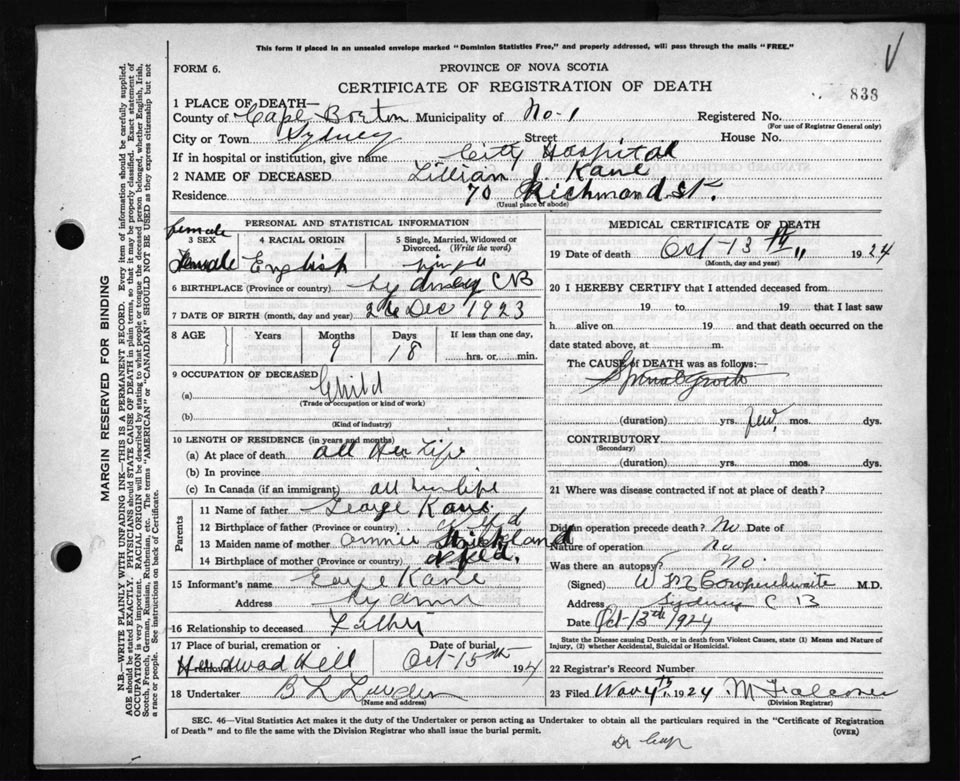 This form if placed in an unsealed envelope marked "Dominion Statistics Free," and properly addressed, will pass through the mails "FREE."
FORM 6.
PROVINCE OF NOVA SCOTIA
CERTIFICATE OF REGISTRATION OF DEATH
838
1 PLACE OF DEATH—
County of Cape Breton Municipality of No-1 Registered No.
(For use of Registrar General only)
City or Town Sydney Street House No.
If in hospital or institution, give name City Hospital
2 NAME OF DECEASED Lillian J. Kane
Residence 70 Richmond St.
(Usual place of abode)
PERSONAL AND STATISTICAL INFORMATION
female
3 SEX 4 RACIAL ORIGIN 5 Single, Married, Widowed or Divorced. (Write the word)
Female English single
6 BIRTHPLACE (Province or country) Sydney CB
7 DATE OF BIRTH (month, day and year) 26 Dec 1923
8 AGE Years Months Days If less than one day,
9 18 hrs. or min.
9 OCCUPATION OF DECEASED
(a) Child
(Trade or occupation or kind of work)
(b)
(Kind of industry)
10 LENGTH OF RESIDENCE (in years and months)
(a) At place of death all Her Life
(b) In province
(c) In Canada (if an immigrant) all her life
Parents
11 Name of father George Kane
12 Birthplace of father (Province or country) Nfld
13 Maiden name of mother Annie Strickland
14 Birthplace of mother (Province or country) Nfld.
15 Informant's name George Kane
Address Sydney
16 Relationship to deceased Father
17 Place of burial, cremation or removal Date of burial
Hill Oct-15th 1924
18 Undertaker B L
(Name and address)
MEDICAL CERTIFICATE OF DEATH
19 Date of death Oct-13th 1924
(Month, day and year)
20 I HEREBY CERTIFY that I attended deceased from
19 to 19 that I last saw
h alive on 19 and that death occurred on the
date stated above, at m.
The CAUSE of DEATH was as follows:
(duration) yrs. few mos. dys.
CONTRIBUTORY
(Secondary)
(duration) yrs. mos. dys.
21 Where was disease contracted if not at place of death?
Did an operation precede death? No Date of
Nature of operation no
Was there an autopsy? No.
(Signed) M.D.
Address Sydney C B
Date Oct-13th 1924
State the Disease causing Death, or in death from Violent Causes, state (1) Means and Nature of
Injury, (2) whether Accidental, Suicidal or Homicidal.
22 Registrar's Record Number
23 Filed Nov 4th, 1924 M Falconer
(Division Registrar)
SEC. 46—Vital Statistics Act makes it the duty of the Undertaker or person acting as Undertaker to obtain all the particulars required in the "Certificate of Registration
of Death" and to file the same with the Division Registrar who shall issue the burial permit.
(OVER)
MARGIN RESERVED FOR BINDING
N.B.—WRITE PLAINLY WITH UNFADING INK—THIS IS A PERMANENT RECORD. Every item of information should be carefully supplied.
AGE should be stated EXACTLY. PHYSICIANS should STATE CAUSE OF DEATH in plain terms, so that it may be properly classified. Exact statement of
OCCUPATION is very important. RACIAL ORIGIN will be described by stating to what people or tongue the deceased person belonged, whether English, Irish,
Scotch, French, German, Russian, Ruthenian, etc. The terms "AMERICAN" or "CANADIAN" SHOULD NOT BE USED as they express citizenship but not
a race or people. See instructions on back of Certificate.